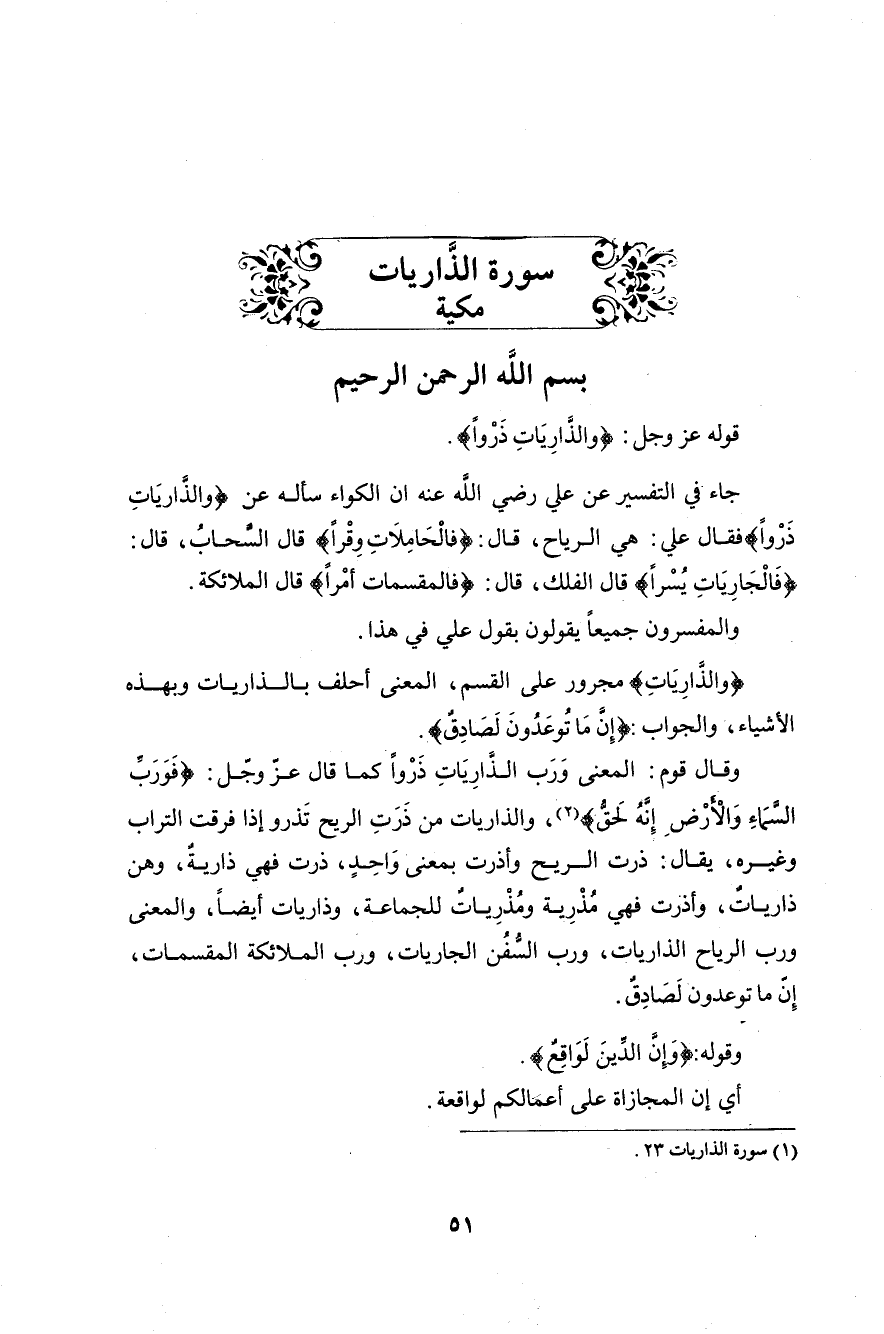 سورة الذَّاريات
مكية
بسم اللَّه الرحمن الرحيم
قوله عز وجل: ﴿والذَّارِيَاتِ ذَرْواً﴾.
جاء في التفسير عن علي رضي اللَّه عنه ان الكواء سأله عن ﴿والذَّارِيَاتِ
ذَرْواً﴾فقال علي: هي الرياح، قال: ﴿فالْحَامِلَاتِ وِقْراً﴾ قال السُّحابُ، قال:
﴿فَالْجَارِيَاتِ يُسْراً﴾ قال الفلك، قال: ﴿فالمقسمات أمْراً﴾ قال الملائكة.
والمفسرون جميعاً يقولون بقول علي في هذا.
﴿والذَّارِيَاتِ﴾ مجرور على القسم، المعنى أحلف بالذاريات وبهذه
الأشياء، والجواب :﴿إِنَّ مَا تُوعَدُونَ لَصَادِقٌ﴾.
وقال قوم: المعنى وَرَب الذَّارِيَاتِ ذَرْواً كما قال عزّ وجّل: ﴿فَوَرَبِّ
السَّمَاءِ وَالْأَرْضِ إِنَّهُ لَحَقٌّ﴾(٢)، والذاريات من ذَرَتِ الريح تَذرو إذا فرقت التراب
وغيره، يقال: ذرت الريح وأذرت بمعنى وَاحِدٍ، ذرت فهي ذاريةٌ، وهن
ذارياتٌ، وأذرت فهي مُذْرِية ومُذْرِياتٌ للجماعة، وذاريات أيضاً، والمعنى
ورب الرياح الذاريات، ورب السُّفُن الجاريات، ورب الملائكة المقسمات،
إنّ ما توعدون لَصَادِقٌ.
وقوله:﴿وَإِنَّ الدِّينَ لَوَاقِعٌ﴾.
أي إن المجازاة على أعمالكم لواقعة.
(١) سورة الذاريات ٢٣.
٥١